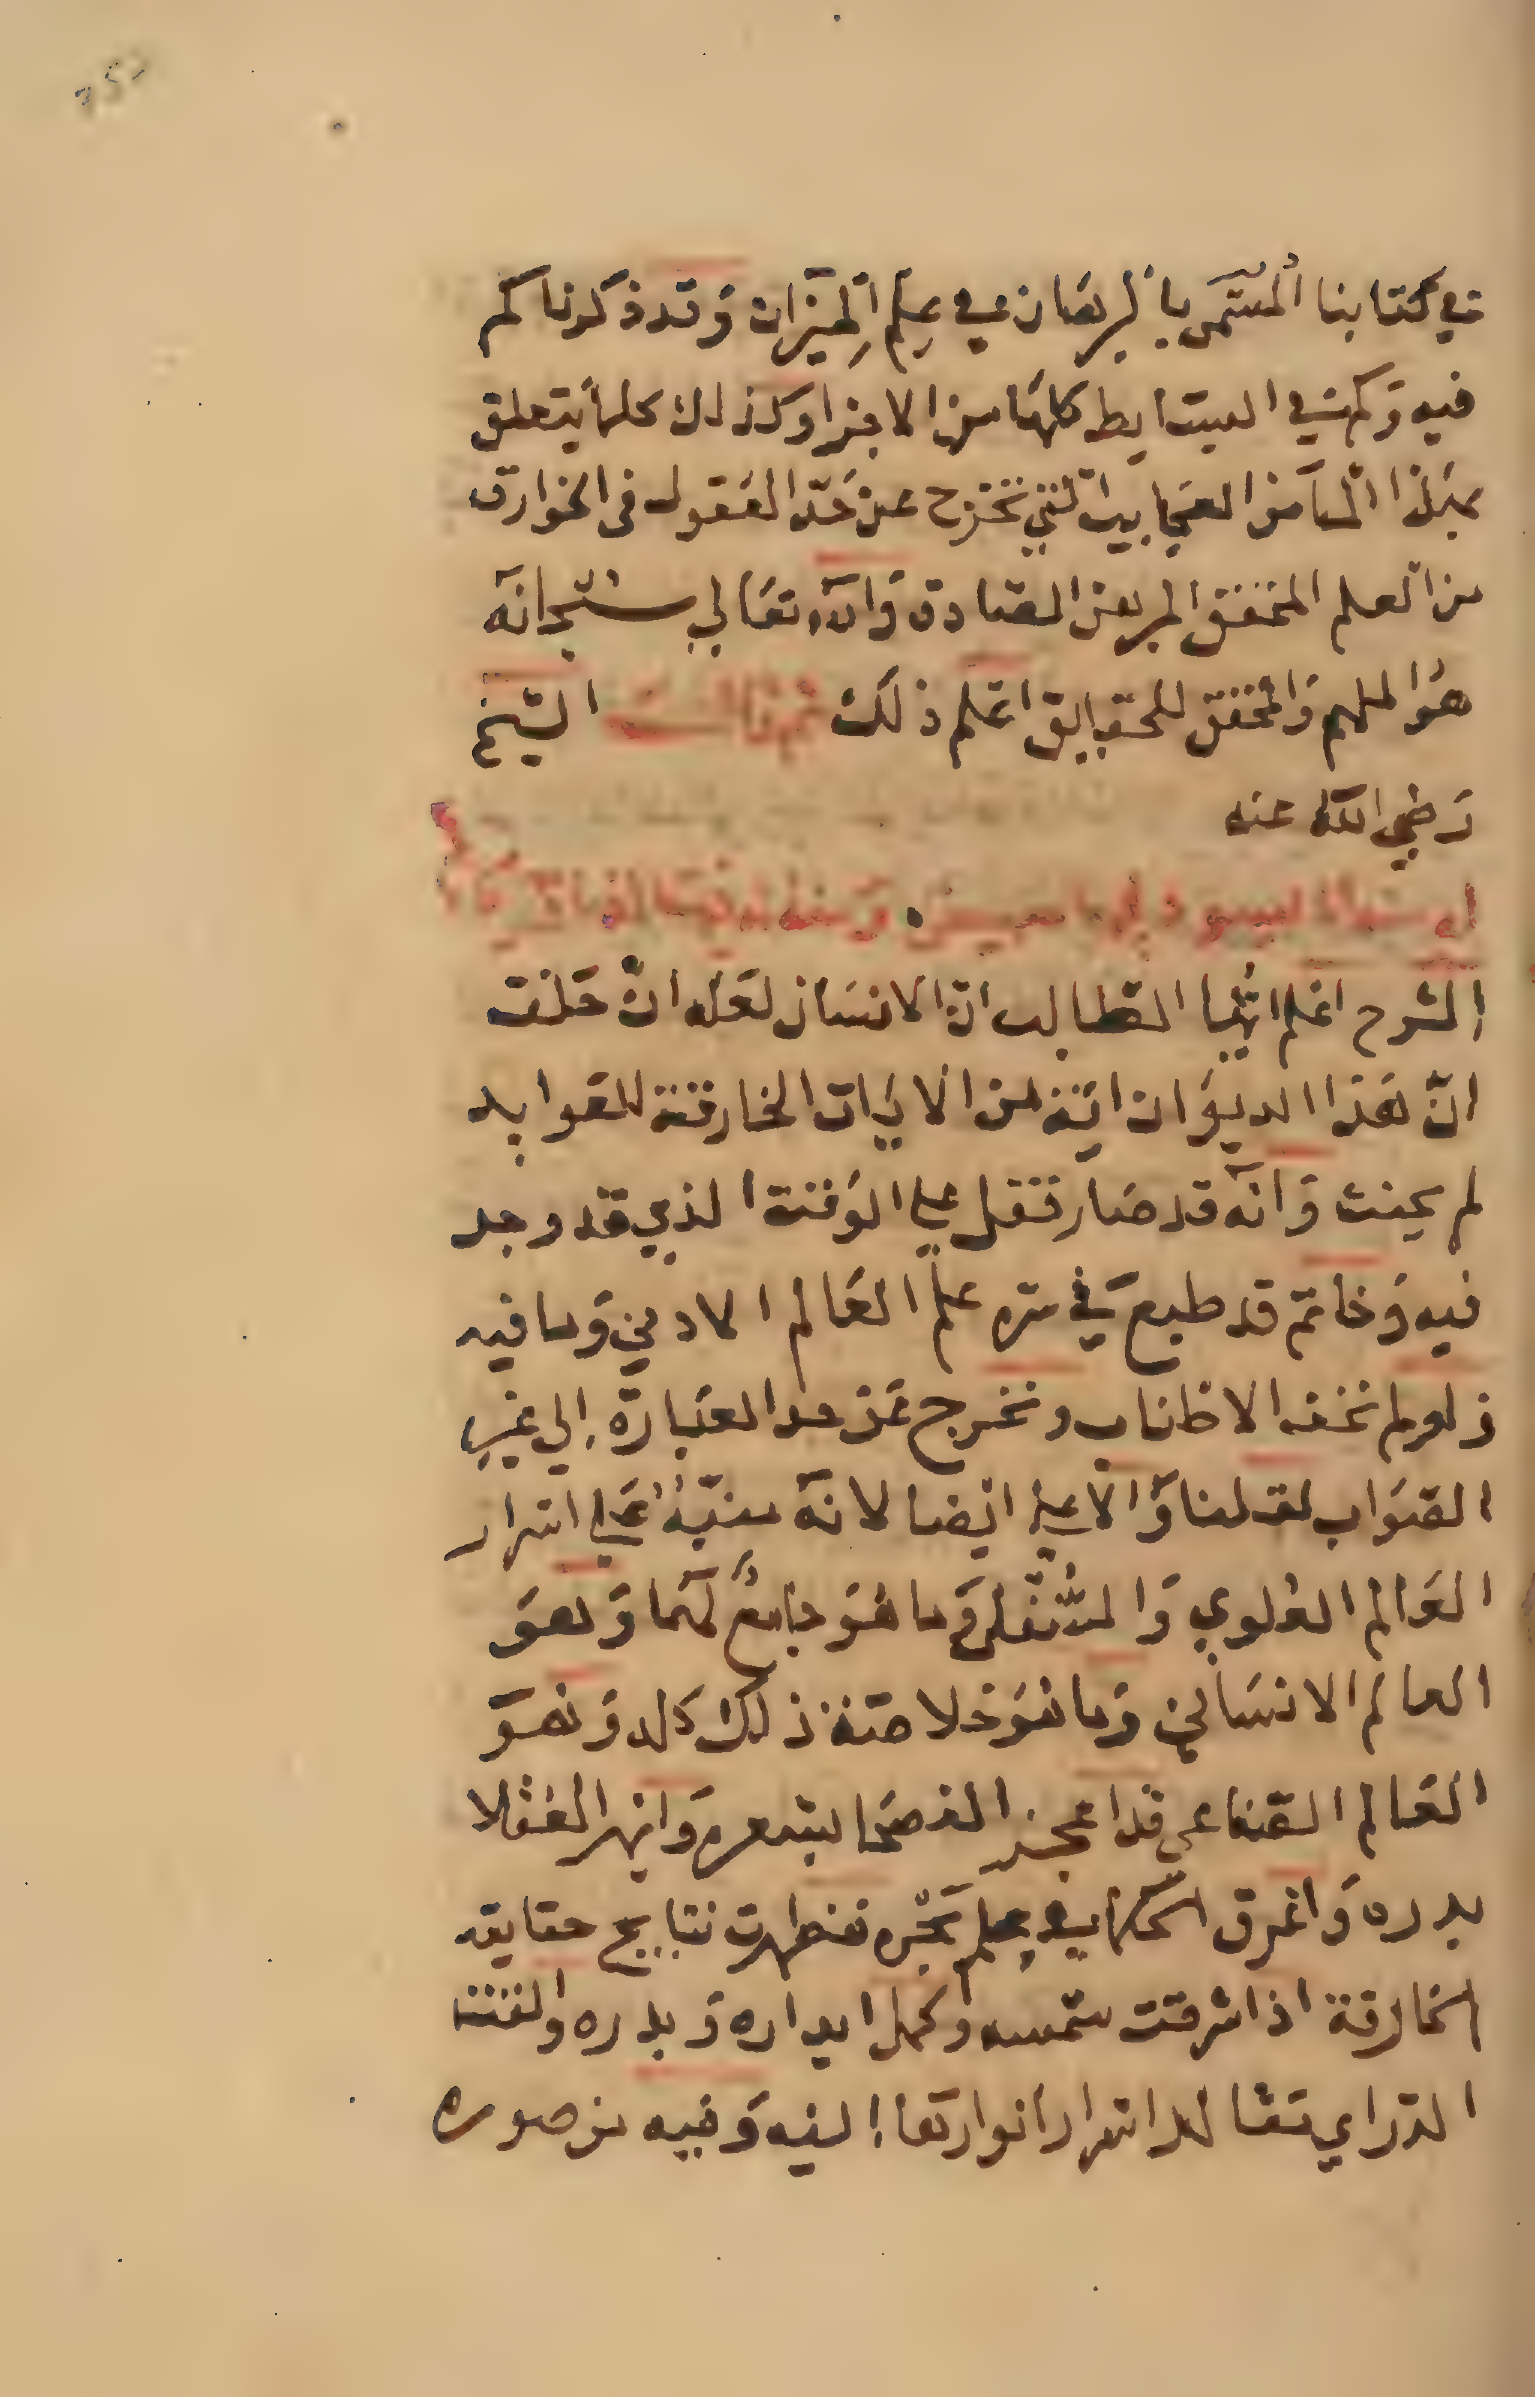 في كتابنا المسمى بالبرهان في علم الميزان وقد ذكرنا كم
فيه وكم في البسايط كلها من الاجزا وكذلك كلما يتعلق
بهذا المآ من العجايب التي تخرج عن حد العقول في الخوارق
من العلم المحقق المبرهن الصادق والله تعالي سبحانه
هو الملهم والمحقق للحقايق اعلم ذلك ثم قال الشيخ
رضي الله عنه
الشرح اعلم ايها الطالب ان الانسان لعله ان حلف
ان هذا الديوان اية من الايات الخارقة للعوايد
لم يحنث وانه قد صار قفل علي الوقت الذي قد وجد
فيه وخاتم قد طبع في سره علم العالم الادمي وما فيه
ولولم نخف الاطناب ونخرج عن حد العبارة الي غير
الصواب لقلنا والاعلي ايضا لانه منبه علي اسرار
العالم العلوي والسفلي وما هو جامع لهما وهو
العالم الانساني وما هو خلاصة ذلك كله وهو
العالم الصناعي قد اعجز الفصحا بشعره وابهر العقلا
بدره واغرق الحكما في علم بحره فظهرت نتايج حقايقه
الخارقة اذ اشرقت شمسه وكمل ابداره وبدره والفتنا
الدراي تقالها اسرار انوارها اليه وفيه من صوره